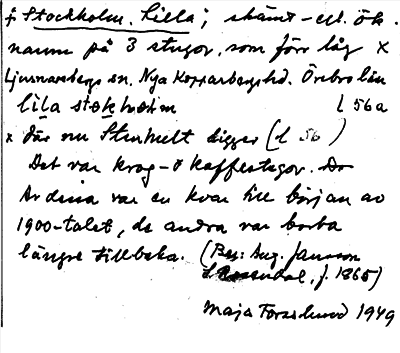 f Stockholm. Lilla; skämt- ell. ök.
namn på 3 stugor, som förr låg x
Ljusnarsbergs sn, Nya Kopparbergs hd. Örebro län
lila stɔkhɔlm l 56a
x där nu Stenhult ligger (l 56 )
Det var krog- o kaffestugor.
Av dessa var en kvar till början av
1900-talet, de andra var borta
längre tillbaka. (Ber: Aug. Jansson
f. 1865)
Maja Forsslund 1949